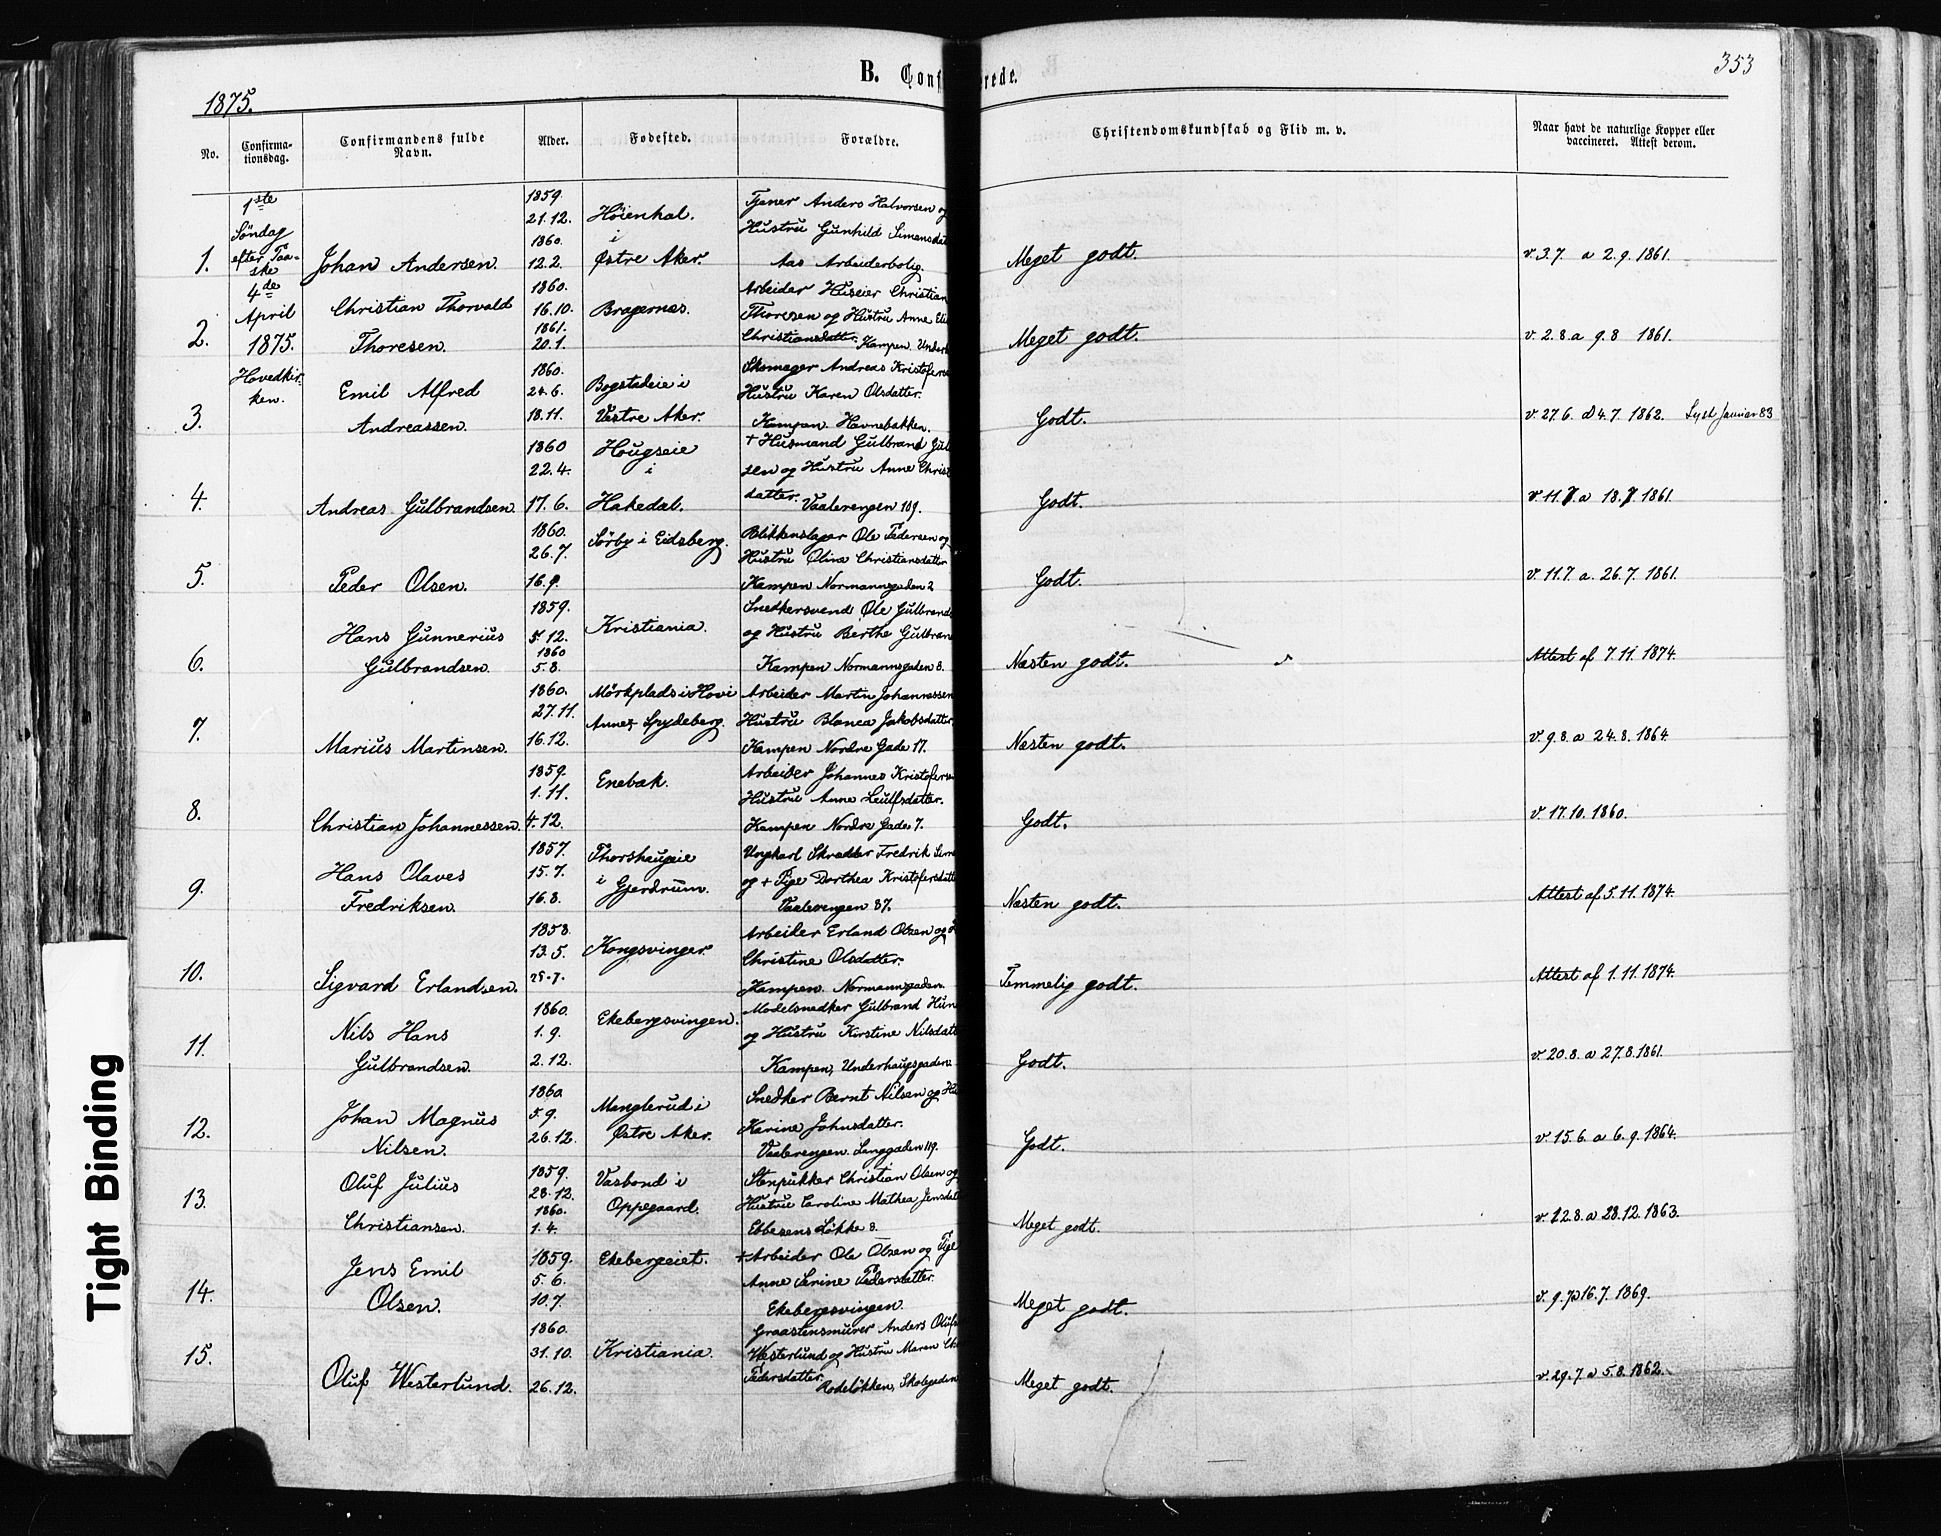 353
B. Conf rede.
1875.
No.
Confirma-
tionsdag.
Confirmandens fulde
Navn.
Alder.
Fødested.
Forældre.
Christendomskundskab og Flid m. v.
Naar havt de naturlige Kopper eller
vaccineret. Attest derom.
1ste
Søndag
efter Paa-
ske
4de
April
1875.
Hovedkir-
ken.
1.
Johan Andersen.
1859.
21.12.
1860.
12.2.
Høienhal.
i
Østre Aker.
Tjener Anders Halvorsen og
Hustru Gunhild Simensdat
Aas Arbeiderbolig.
Meget godt.
v. 3.7. a 2.9. 1861.
2.
Christian Thorvald
Thoresen.
1860.
16.10.
1861.
20.1.
Bragernæs.
Arbeider Huseier Christian
Thoresen og Hustru Anne Eli
Christiansdatter.
Kampen. Under
Meget godt.
v. 2.8. a 9.8 1861.
3.
Emil Alfred
Andreassen.
1860.
24.6.
18.11.
Bogstadeie i
Vestre Aker.
Skomager Andreas Kristofers
Hustru Karen Olsdatter.
Kampen. Havnebakken.
Godt.
v. 27.6. a 4.7. 1862. Lyst Januar 83
4.
Andreas Gulbrandsen.
1860
22.4.
17.6.
Hougseie
i
Hakedal.
+ Husmand Gulbrand Gul
sen og Hustru Anne Christ
datter. Vaalerengen 109.
Godt.
v. 11.7. a 18.7. 1861.
5.
Peder Olsen.
1860.
26.7.
16.9.
Sørby i Eidsberg.
Blikkenslager Ole Pedersen og
Hustru Olina Christiansdatter
Kampen Normannsgaden 2
Godt.
v. 11.7. a. 26.7. 1861.
6.
Hans Gunnerius
Gulbrandsen.
1859.
5.12.
1860
5.8.
Kristiania.
Snedkersvend Ole Gulbrands
og Hustru Berthe Gulbran
Kampen Normannsgaden 8.
Næsten godt.
Attest af 7.11. 1874.
7.
Marius Martinsen.
1860.
27.11.
16.12.
Mörkplads i Hovi
Annex Spydeberg.
Arbeider Martin Johannessen
Hustru Blanca Jakobsdatter.
Kampen Nordre Gade 17.
Næsten godt.
v. 9.8. a 24.8. 1864.
8.
Christian Johannessen.
1859.
1.11.
4.12.
Enebak.
Arbeider Johannes Kristofers
Hustru Anne Leulfsdatter.
Kampen Nordre Gade 7.
Godt.
v. 17.10. 1860.
9.
Hans Olaves
Fredriksen.
1857.
15.7.
16.8.
Thorshaugeie
i
Gjerdrum.
Ungkarl Skrædder Fredrik Sim
og + Pige Dorthea Kristofersdatt
Vaalerengen 87.
Næsten godt.
Attest af 5.11. 1874.
10.
Sigvard Erlandsen.
1858.
13.5.
25.7.
Kongsvinger.
Arbeider Erland Olsen og
Christine Olsdatter.
Kampen. Normannsgaden.
Temmelig godt.
Attest af 1.11. 1874.
11.
Nils Hans
Gulbrandsen.
1860.
1.9.
2.12.
Ekebergsvingen.
Modelsnedker Gulbrand Hun
og Hustru Kirstine Nilsdatt
Kampen, Underhaugsgaden.
Godt.
v. 20.8. a 27.8. 1861.
12.
Johan Magnus
Nilsen.
1860.
5.9.
26.12.
Manglerud i
Østre Aker.
Snedker Bernt Nilsen og Hu
Karine Johnsdatter.
Vaalerengen. Langgaden 119.
Godt.
v. 15.6. a 6.9. 1864.
13.
Oluf Julius
Christiansen.
1859.
28.12.
1860.
1.4.
Vasbond i
Oppegaard.
Stenpukker Christian Olsen og
Hustru Caroline Mathea Jensdat
Ebbesens Løkke 8.
Meget godt.
v. 12.8. a 28.12. 1863.
14.
Jens Emil
Olsen.
1859.
5.6.
10.7.
Ekebergeiet.
+ Arbeider Ole Olsen og Pige
Anne Serine Pedersdatter.
Ekebergsvingen.
Meget godt.
v. 9.7 a 16.7. 1869.
15.
Oluf Westerlund.
1860.
31.10.
26.12.
Kristiania.
Graastensmurer Anders Olufs
Westerlund og Hustru Maren
Pedersdatter.
Rodeløkken, Skolegaden
Meget godt.
v. 29.7. a 5.8. 1862.
Tight Binding